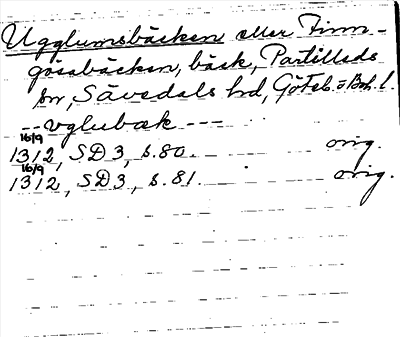 Ugglumsbäcken eller Finn-
gösabäcken, bäck, Partilleds
sn, Sävedals hd, Göteb. o Boh. l.
-- vglubæk ---
16/9
1312, SD 3, s. 80. orig.
16/9
1312, SD 3, s. 81. orig.